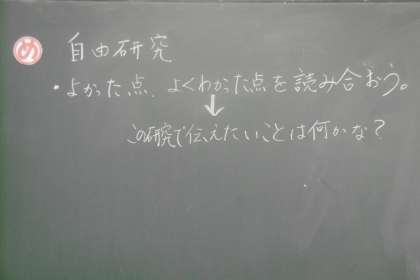 め 自由研究
・よかった点、よくわかった点を読み合おう。
↓
この研究で伝えたいことは何かな？